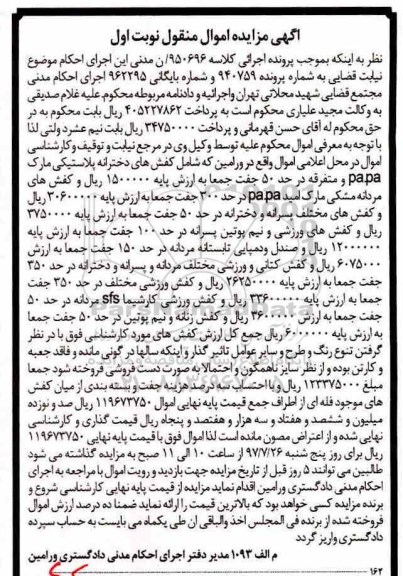 آگهی مزایده اموال منقول نوبت اول
نظر به اینکه بموجب پرونده اجرائی کلاسه ۹۵۰۶۹۶/ن مدنی این اجرای احکام موضوع
نیابت قضایی به شماره پرونده ۹۴۰۷۵۹ و شماره بایگانی ۹۶۲۲۹۵ اجرای احکام مدنی
مجتمع قضایی شهید محلاتی تهران واجرائیه و دادنامه مربوطه محکوم علیه غلام صدیقی
به وکالت مجید علیاری محکوم است به پرداخت ۴۰۵۲۲۷۸۶۲ ریال بابت محکوم به در
حق محکوم له آقای حسن قهرمانی و پرداخت ۳۴۷۵۰۰۰۰ ریال بابت نیم عشر دولتی لذا
با توجه به معرفی اموال محکوم علیه توسط وکیل وی در مرجع نیابت و توقیف و کارشناسی
اموال در محل اعلامی اموال واقع در ورامین که شامل کفش های دخترانه پلاستیکی مارک
pa.pa و متفرقه در حد ۵۰ جفت جمعا به ارزش پایه ۱۵۰۰۰۰۰ ریال و کفش های
مردانه مشکی مارک امید pa.pa در حد ۳۰۰ جفت جمعا به ارزش پایه ۳۰۶۰۰۰۰۰ ریال
و کفش های مختلف پسرانه و دخترانه در حد ۵۰ جفت جمعا به ارزش پایه ۳۷۵۰۰۰۰
ریال و کفش های ورزشی و نیم پوتین پسرانه در حد ۱۰۰ جفت جمعا به ارزش پایه
۱۲۰۰۰۰۰۰ ریال و صندل ودمپایی تابستانه مردانه در حد ۱۵۰ جفت جمعا به ارزش
۶۰۷۵۰۰۰ ریال و کفش کتانی و ورزشی مختلف مردانه و پسرانه و دخترانه در حد ۳۵۰
جفت جمعا به ارزش پایه ۲۶۲۵۰۰۰۰ ریال و کفش ورزشی مختلف در حد ۳۵۰ جفت
جمعا به ارزش پایه ۳۳۶۰۰۰۰۰ ریال و کفش ورزشی کارشیما sfs مردانه در حد ۵۰
جفت جمعا به ارزش ۳۶۰۰۰۰۰ ریال و کفش زنانه و نیم پوتین در حد ۵۰ جفت جمعا
به ارزش پایه ۶۰۰۰۰۰۰ ریال جمع کل ارزش کفش های مورد کارشناسی فوق با در نظر
گرفتن تنوع رنگ و طرح و سایر عوامل تاثیر گذار و اینکه سالها در گونی مانده و فاقد جعبه
و کارتن بوده و از نظر سایز ناهمگون و احتمالا به صورت دست فروشی فروخته شود جمعا
مبلغ ۱۲۳۳۷۵۰۰۰ ریال و با احتساب سه درصد هزینه جفت و بسته بندی از میان کفش
های موجود فله ای از اطراف جمع قیمت پایه نهایی اموال ۱۱۹۶۷۳۷۵۰ ریال صد و نوزده
میلیون و ششصد و هفتاد و سه هزار و هفتصد و پنجاه ریال قیمت گذاری و کارشناسی
نهایی شده و از اعتراض مصون مانده است لذا اموال فوق با قیمت پایه نهایی ۱۱۹۶۷۳۷۵۰
ریال برای روز پنج شنبه ۹۷/۷/۲۶ از ساعت ۱۰ الی ۱۱ صبح به مزایده گذاشته می شود
طالبین می توانند ۵ روز قبل از تاریخ مزایده جهت بازدید و رویت اموال با مراجعه به اجرای
احکام مدنی دادگستری ورامین اقدام نماید مزایده از قیمت پایه نهایی کارشناسی شروع و
برنده مزایده کسی خواهد بود که بالاترین قیمت را ارائه نماید ضمنا ده درصد ارزش اموال
فروخته شده از برنده فی المجلس اخذ والباقی ان طی یکماه می بایست به حساب سپرده
دادگستری واریز گردد
م الف ۱۰۹۳ مدیر دفتر اجرای احکام مدنی دادگستری ورامین
۱۶۲